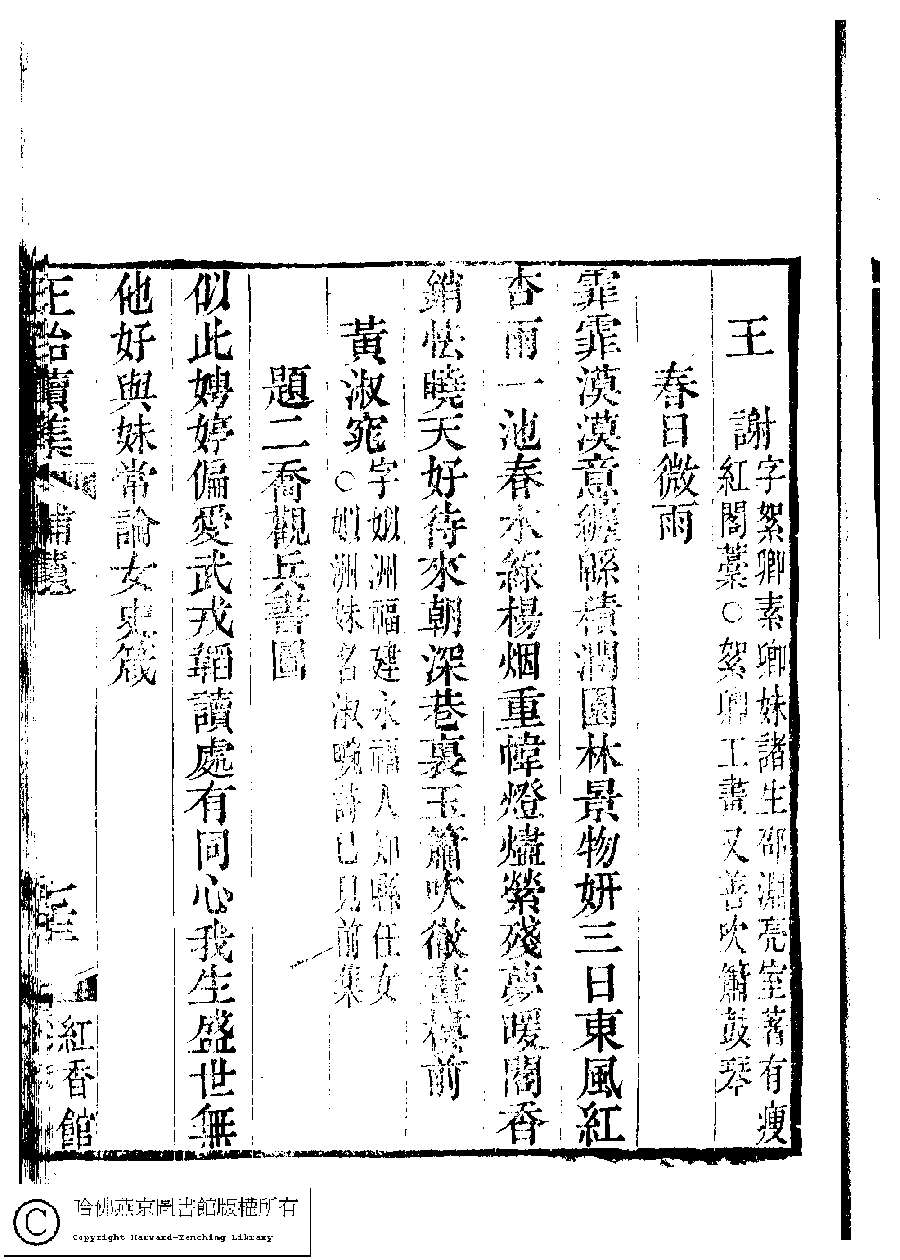 王　謝
字絮卿素卿妹諸生邵淵亮室著有痩
紅閣藁○絮卿工畫又善吹簫鼓琴
春日微雨
霏霏漠漠意纏緜積潤園林景物妍三日東風紅
杏雨一池春水綠楊烟重幃燈燼縈殘夢暖閣香
銷怯曉天好待來朝深巷裏玉簫吹徹畫樓前
黃淑窕
字姒洲福建永福人知縣任女
○姒洲妹名淑畹詩已見前集
題二喬觀兵書圖
似此娉婷偏愛武戎韜讀處有同心我生盛世無
他好與妹常論女史箴
正始續集
補遺
紅香館
哈佛燕京圖書館版權所有
Copyright Harvard-Yenching Library